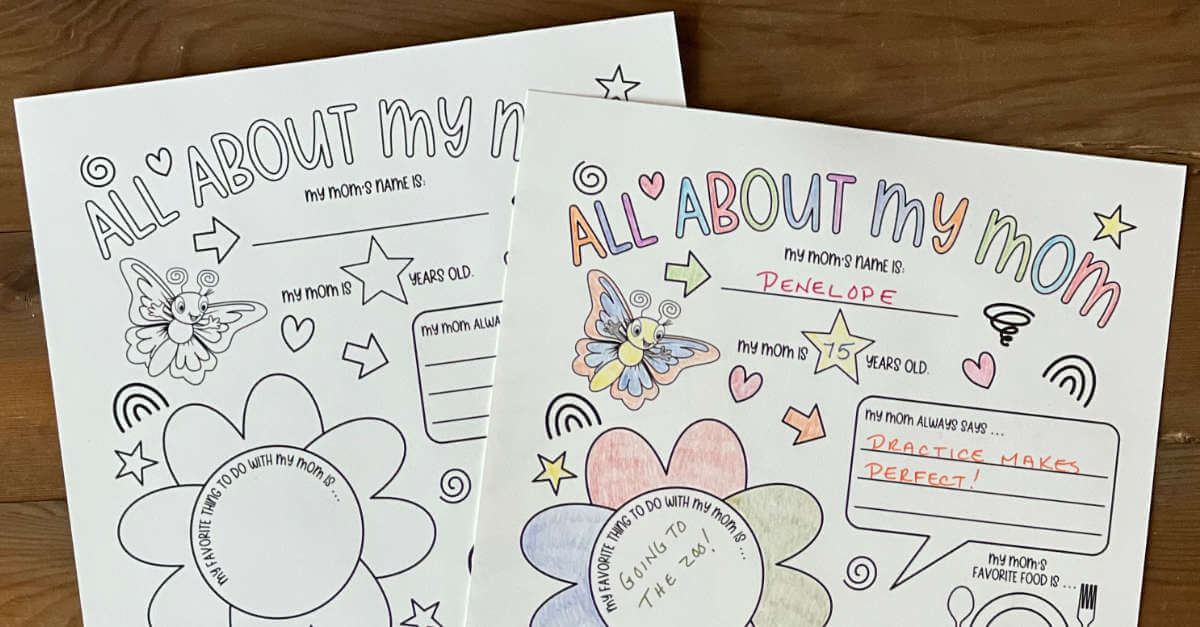 ALL ABOUT my m
my mom's name is:
my mom is
YEARS OLD.
my mom ALWA
my FAVORITE THING TO DO WITH my mom is ...
ALL ABOUT my mom
my mom's name is:
PENELOPE
my mom is 75 YEARS OLD.
my mom ALWAYS SAYS ...
PRACTICE MAKES
PERFECT!
my FAVORITE THING TO DO WITH my mom is ...
GOING TO
THE ZOO!
my mom's
FAVORITE FOOD IS ...